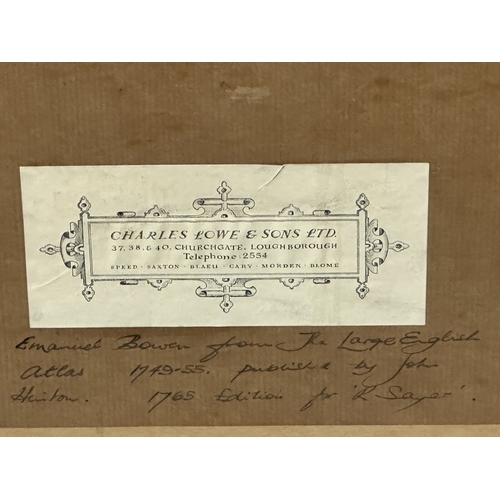 CHARLES LOWE & SONS LTD.
37, 38, & 40, CHURCHGATE, LOUGHBOROUGH
Telephone: 2554
SPEED · SAXTON · BLAEU · CARY · MORDEN · BLOME
Emanuel Bowen from The Large English
Atlas 1749-55. published by John
Hinton. 1765 Edition for 'R Sayer'.